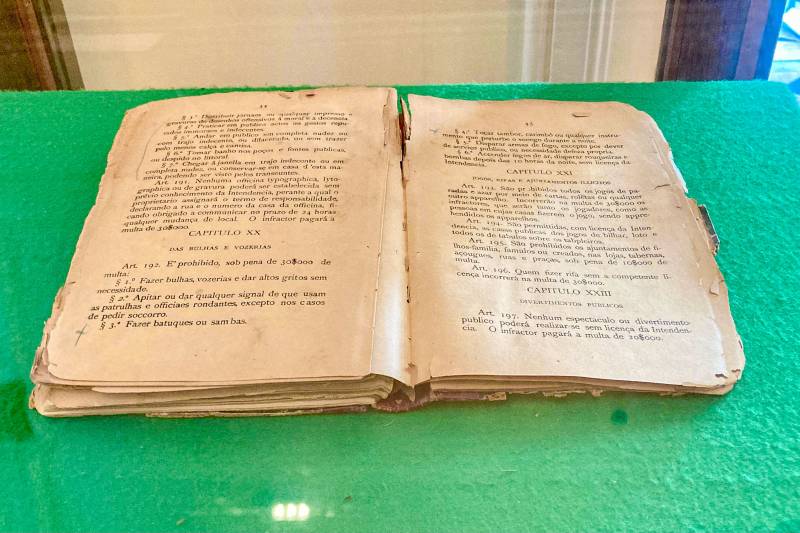 44
§ 3.º Distribuir jornaes ou qualquer impresso e
gravuras de desenhos offensivos á moral e á decencia.
§ 4.º Praticar em publico actos ou gestos repu-
tados immoraes e indecentes.
§ 5.º Andar em publico em completa nudez ou
com trajo indecente, ou dilacerado, ou sem trazer
pelo menos calça e camisa.
§ 6.º Tomar banho nos poços e fontes publicas,
ou despido no littoral.
§ 7.º Chegar á janella em trajo indecente ou em
completa nudez, ou conservar-se em casa d'esta ma-
neira, podendo ser visto pelos transeuntes.
Art. 191. Nenhuma officina typographica, lyto-
graphica ou de gravura poderá ser estabelecida sem
prévio conhecimento da Intendencia, perante a qual o
proprietario assignará o termo de responsabilidade,
declarando a rua e o numero da casa da officina, fi-
cando obrigado a communicar no prazo de 24 horas
qualquer mudança de local. O infractor pagará a
multa de 30$000.
CAPITULO XX
DAS BULHAS E VOZERIAS
Art. 192. E' prohibido, sob pena de 30$000 de
multa:
§ 1.º Fazer bulhas, vozerias e dar altos gritos sem
necessidade.
§ 2.º Apitar ou dar qualquer signal de que usam
as patrulhas e officiaes rondantes, excepto nos casos
de pedir soccorro.
§ 3.º Fazer batuques ou sambas.
45
§ 4.º Tocar tambor, carimbó ou qualquer instru-
mento que perturbe o socego durante a noite.
§ 5.º Disparar armas de fogo, excepto por dever
de serviço publico, ou necessidade de defeza propria.
§ 6.º Accender fogos de ar, disparar rouqueiras e
bombas depois das 10 horas da noite, sem licença da
Intendencia.
CAPITULO XXI
JOGOS, RIFAS E AJUNTAMENTOS ILLICITOS
Art. 193. São prohibidos todos os jogos de pa-
radas e azar por meio de cartas, roletas ou qualquer
outro apparelho. Incorrerão na multa de 30$000 os
infractores, que serão tanto os jogadores, como as
pessoas em cujas casas fizerem o jogo, sendo appre-
hendidos os apparelhos.
Art. 194. São permittidas, com licença da Inten-
dencia, as casas publicas dos jogos de bilhar, loto e
todos os de tabulas sobre os taboleiros.
Art. 195. São prohibidos os ajuntamentos de fi-
lhos-familia, famulos ou creados, nas lojas, tabernas,
açougues, ruas e praças, sob pena de 10$000 de
multa.
Art. 196. Quem fizer rifa sem a competente li-
cença incorrerá na multa de 30$000.
CAPITULO XXIII
DIVERTIMENTOS PUBLICOS
Art. 197. Nenhum espectaculo ou divertimento
publico poderá realizar-se sem licença da Intenden-
cia. O infractor pagará a multa de 20$000.